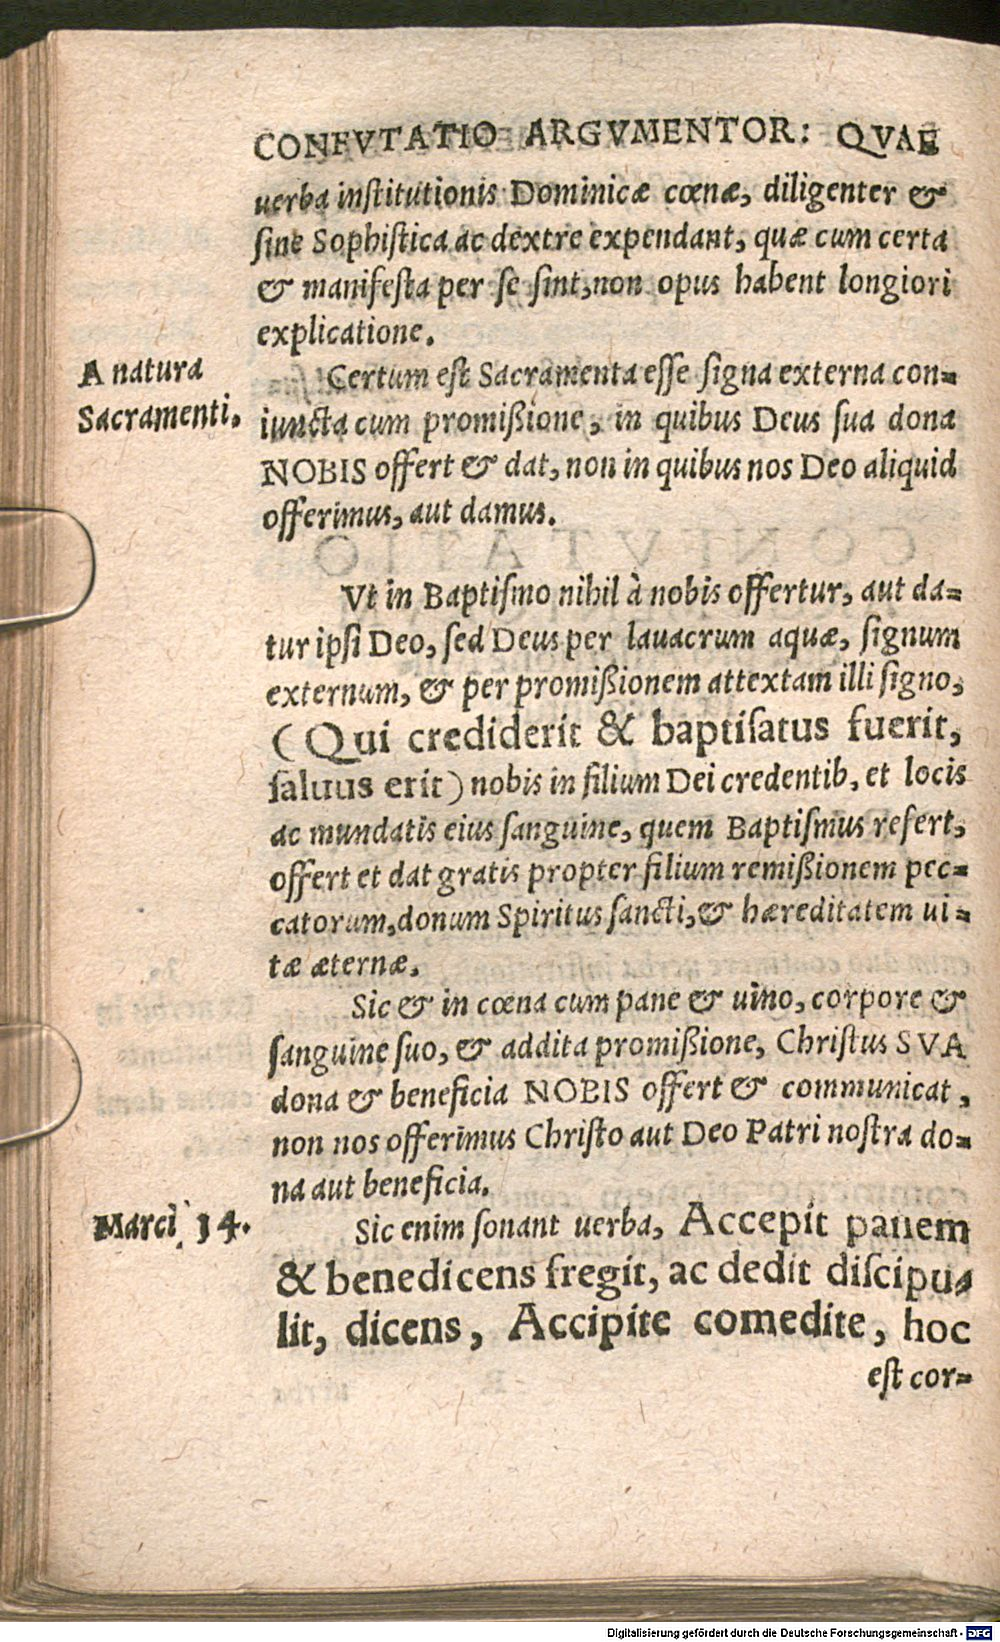 CONFVTATIO ARGVMENTOR: QVAE
uerba institutionis Dominicæ cœnæ, diligenter &
sine Sophistica ac dextre expendant, quæ cum certa
& manifesta per se sint, non opus habent longiori
explicatione.
A natura
Sacramenti.
Certum est Sacramenta esse signa externa con=
iuncta cum promißione, in quibus Deus sua dona
NOBIS offert & dat, non in quibus nos Deo aliquid
offerimus, aut damus.
Vt in Baptiſmo nihil à nobis offertur, aut da=
tur ipsi Deo, sed Deus per lauacrum aquæ, signum
externum, & per promißionem attextam illi signo,
(Qui crediderit & baptiſatus fuerit,
ſaluus erit) nobis in filium Dei credentib, et locis
ac mundatis eius sanguine, quem Baptiſmus refert,
offert et dat gratis propter filium remißionem pec=
catorum, donum Spiritus sancti, & hæreditatem ui=
tæ æternæ.
Sic & in cœna cum pane & uino, corpore &
sanguine suo, & addita promißione, Christus SVA
dona & beneficia NOBIS offert & communicat,
non nos offerimus Christo aut Deo Patri nostra do=
na aut beneficia.
Marci 14.
Sic enim sonant uerba, Accepit panem
& benedicens fregit, ac dedit diſcipu=
lit, dicens, Accipite comedite, hoc
est cor=
Digitalisierung gefördert durch die Deutsche Forschungsgemeinschaft - DFG